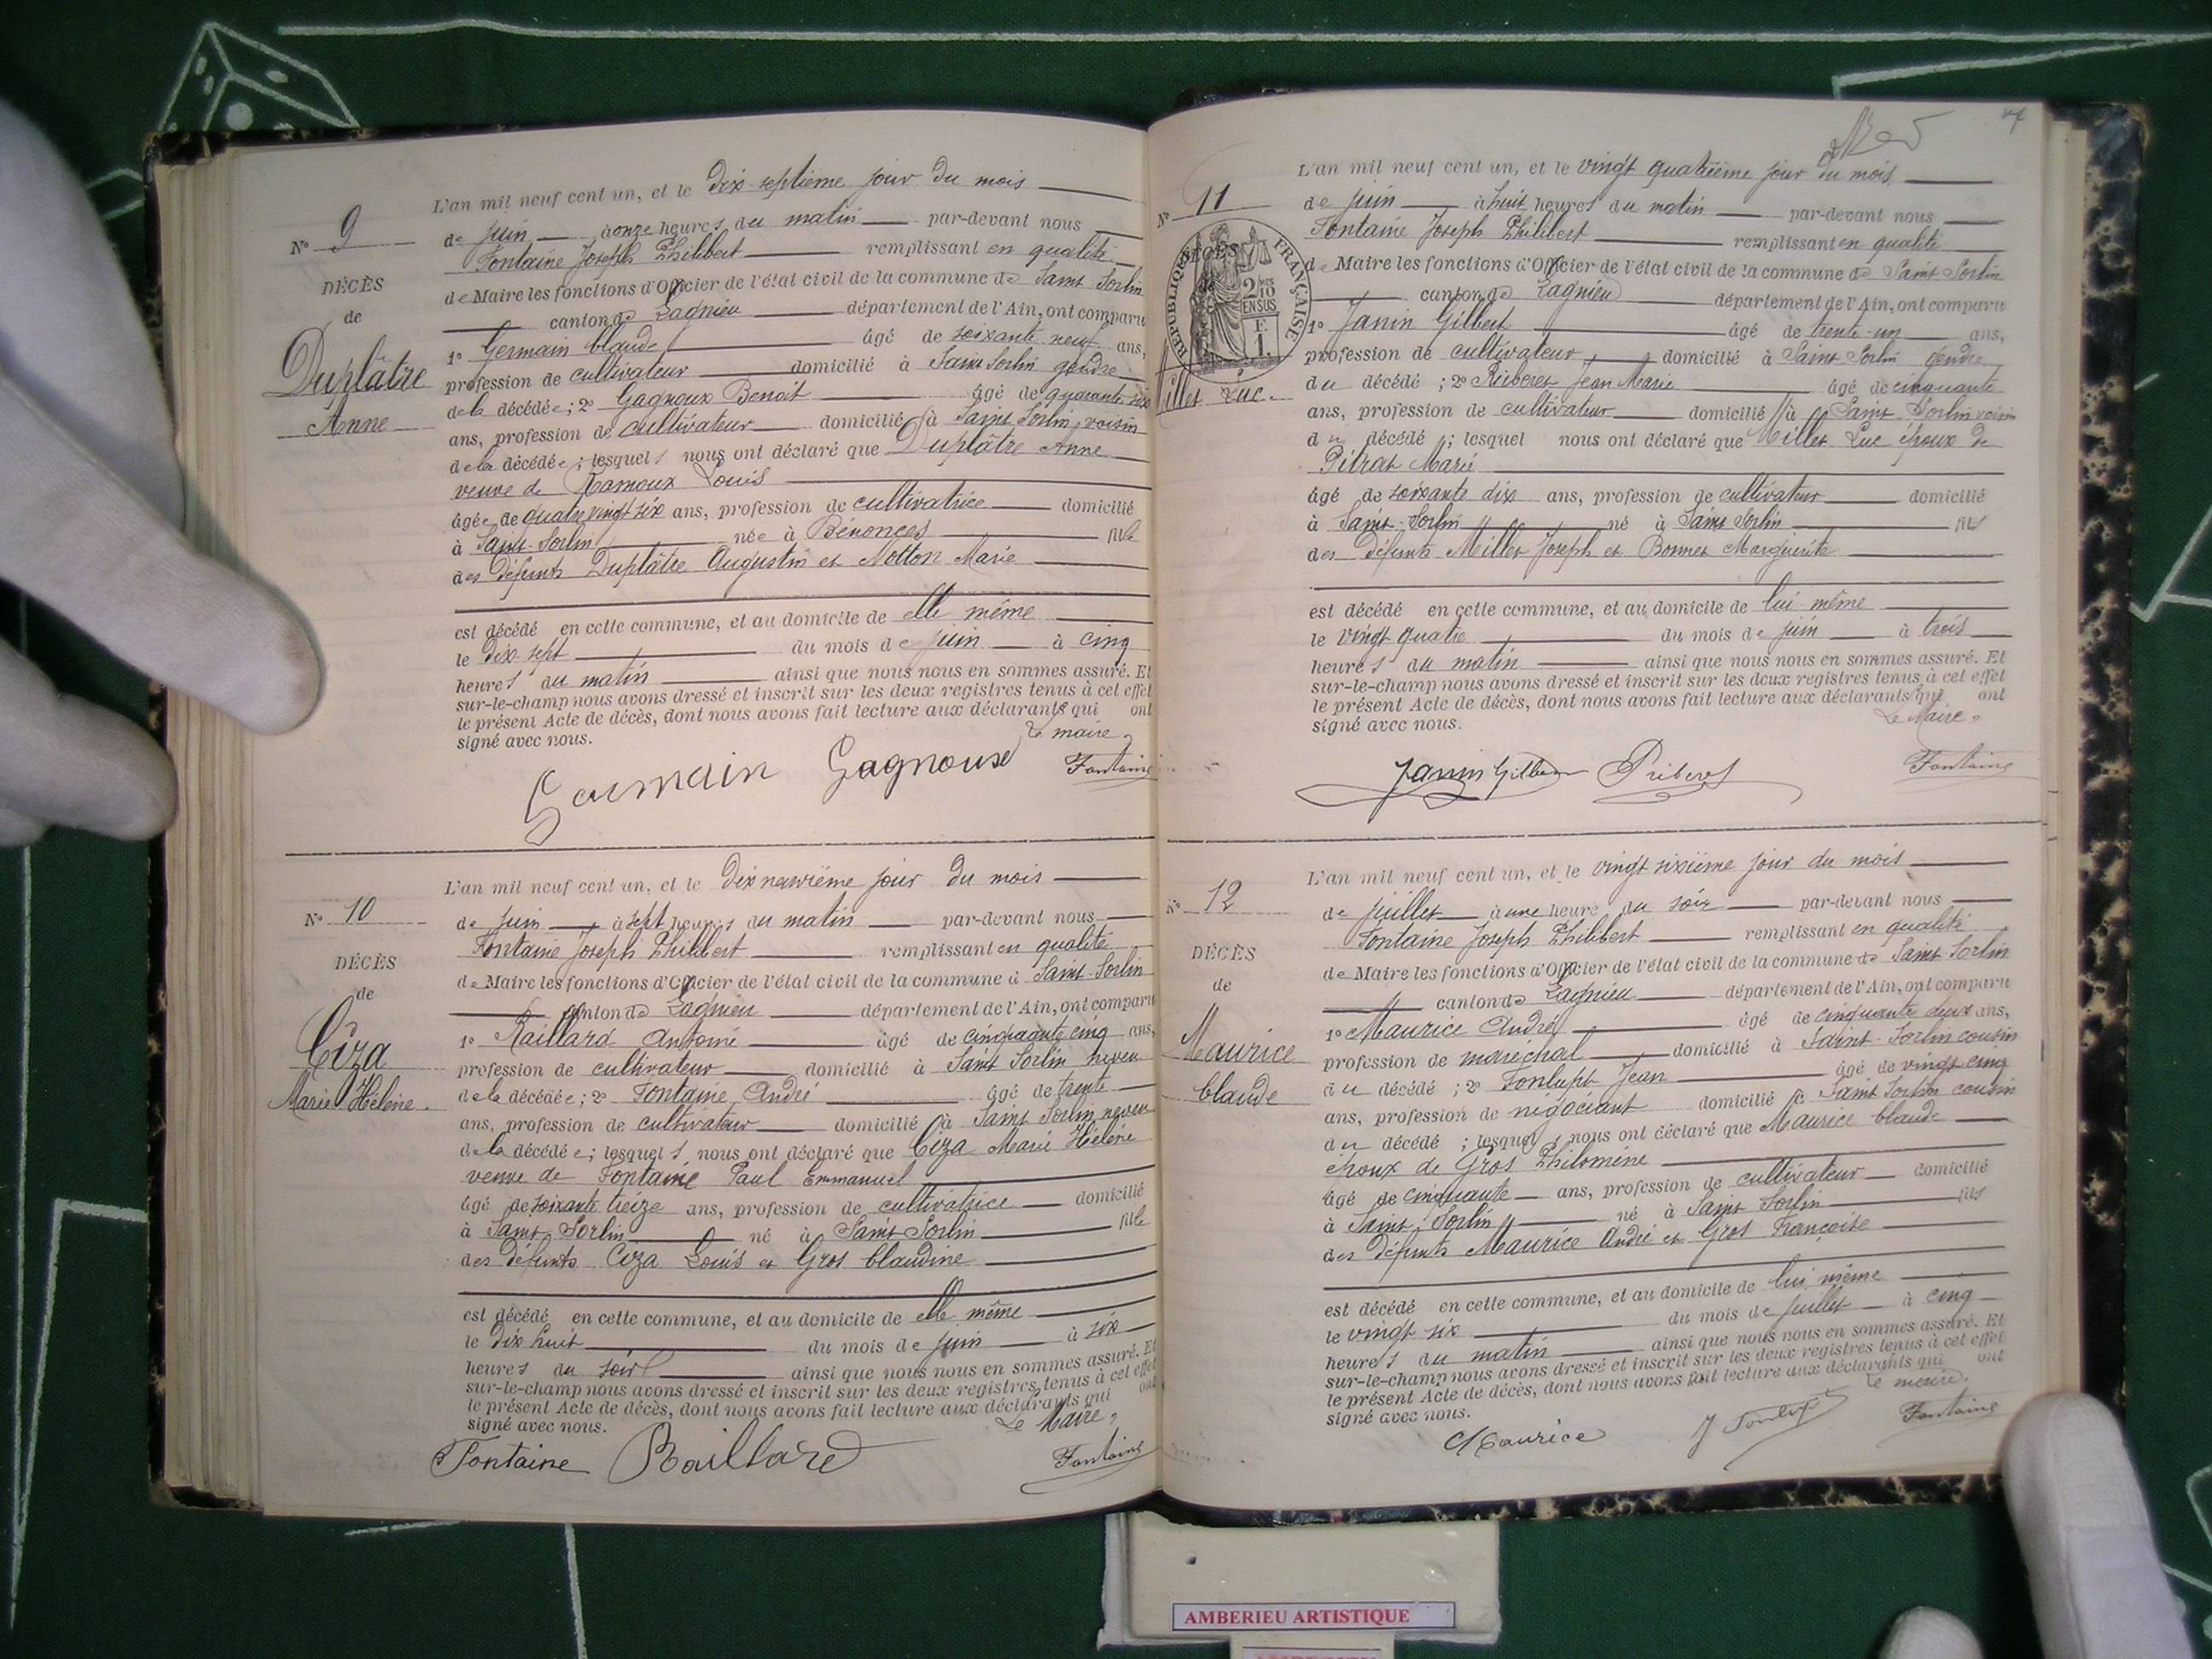 L'an mil neuf cent un, et le dix-septième jour du mois
N° 9
de juin à onze heures du matin par-devant nous
Fontaine Joseph Philibert remplissant en qualité
DÉCÈS
de Maire les fonctions d'Officier de l'état civil de la commune de Saint Sorlin
de
canton de Lagnieu département de l'Ain, ont comparu
1° Germain Claude âgé de soixante neuf ans,
Duplâtre
profession de cultivateur domicilié à Saint Sorlin gendre
Anne
de la décédée; 2° Gagnoux Benoit âgé de quarante six
ans, profession de cultivateur domicilié à Saint Sorlin, voisin
de la décédée; lesquels nous ont déclaré que Duplâtre Anne
veuve de Ramoux Louis
âgée de quatre vingt six ans, profession de cultivatrice domicilié
à Saint-Sorlin née à Bénonces fille
des défunts Duplâtre Augustin et Notton Marie
est décédé en cette commune, et au domicile de elle même
le dix-sept du mois de juin à cinq
heures du matin ainsi que nous nous en sommes assuré. Et
sur-le-champ nous avons dressé et inscrit sur les deux registres tenus à cet effet
le présent Acte de décès, dont nous avons fait lecture aux déclarants qui ont
signé avec nous. Le maire,
Germain Gagnoux Fontaine
L'an mil neuf cent un, et le dix neuvième jour du mois
N° 10
de juin à sept heures du matin par-devant nous
Fontaine Joseph Philibert remplissant en qualité
DÉCÈS
de Maire les fonctions d'Officier de l'état civil de la commune à Saint-Sorlin
de
canton de Lagnieu département de l'Ain, ont comparu
1° Raillard Antoine âgé de cinquante cinq ans,
Ciza
profession de cultivateur domicilié à Saint Sorlin neveu
Marie Hélène
de la décédée; 2° Fontaine André âgé de trente
ans, profession de cultivateur domicilié à Saint Sorlin neveu
de la décédée; lesquels nous ont déclaré que Ciza Marie Hélène
veuve de Fontaine Paul Emmanuel
âgé de soixante treize ans, profession de cultivatrice domicilié
à Saint-Sorlin né à Saint-Sorlin fille
des défunts Ciza Louis et Gros Claudine
est décédé en cette commune, et au domicile de elle même
le dix huit du mois de juin à six
heures du soir ainsi que nous nous en sommes assuré. Et
sur-le-champ nous avons dressé et inscrit sur les deux registres tenus à cet effet
le présent Acte de décès, dont nous avons fait lecture aux déclarants qui ont
signé avec nous. Le Maire,
Fontaine Raillard Fontaine
L'an mil neuf cent un, et le vingt quatrième jour du mois
N° 11
de juin à huit heures du matin par-devant nous
Fontaine Joseph Philibert remplissant en qualité
DÉCÈS
RÉPUBLIQUE FRANÇAISE
2/10 EN SUS
F. 1.
de Maire les fonctions d'Officier de l'état civil de la commune de Saint Sorlin
canton de Lagnieu département de l'Ain, ont comparu
1° Janin Gilbert âgé de trente-un ans,
profession de cultivateur domicilié à Saint Sorlin gendre
Millet Luc
du décédé; 2° Riberet Jean Marie âgé de cinquante
ans, profession de cultivateur domicilié à Saint-Sorlin voisin
du décédé; lesquel nous ont déclaré que Millet Luc époux de
Pitrat Marie
âgé de soixante dix ans, profession de cultivateur domicilié
à Saint-Sorlin né à Saint Sorlin fils
des défunts Millet Joseph et Bonnet Marguerite
est décédé en cette commune, et au domicile de lui même
le vingt quatre du mois de juin à trois
heures du matin ainsi que nous nous en sommes assuré. Et
sur-le-champ nous avons dressé et inscrit sur les deux registres tenus à cet effet
le présent Acte de décès, dont nous avons fait lecture aux déclarants qui ont
signé avec nous. Le Maire,
Janin Gilbert Riberet Fontaine
L'an mil neuf cent un, et le vingt sixième jour du mois
N° 12
de juillet à une heure du soir par-devant nous
Fontaine Joseph Philibert remplissant en qualité
DÉCÈS
de Maire les fonctions d'Officier de l'état civil de la commune de Saint Sorlin
de
canton de Lagnieu département de l'Ain, ont comparu
1° Maurice André âgé de cinquante deux ans,
Maurice
profession de maréchal domicilié à Saint-Sorlin cousin
Claude
du décédé; 2° Fonlupt Jean âgé de vingt cinq
ans, profession de négociant domicilié à Saint Sorlin cousin
du décédé; lesquels nous ont déclaré que Maurice Claude
époux de Gros Philomène
âgé de cinquante ans, profession de cultivateur domicilié
à Saint-Sorlin né à Saint Sorlin fils
des défunts Maurice André et Gros Françoise
est décédé en cette commune, et au domicile de lui même
le vingt six du mois de juillet à cinq
heures du matin ainsi que nous nous en sommes assuré. Et
sur-le-champ nous avons dressé et inscrit sur les deux registres tenus à cet effet
le présent Acte de décès, dont nous avons fait lecture aux déclarants qui ont
signé avec nous. Le maire,
Maurice J Fonlupt Fontaine
AMBERIEU ARTISTIQUE